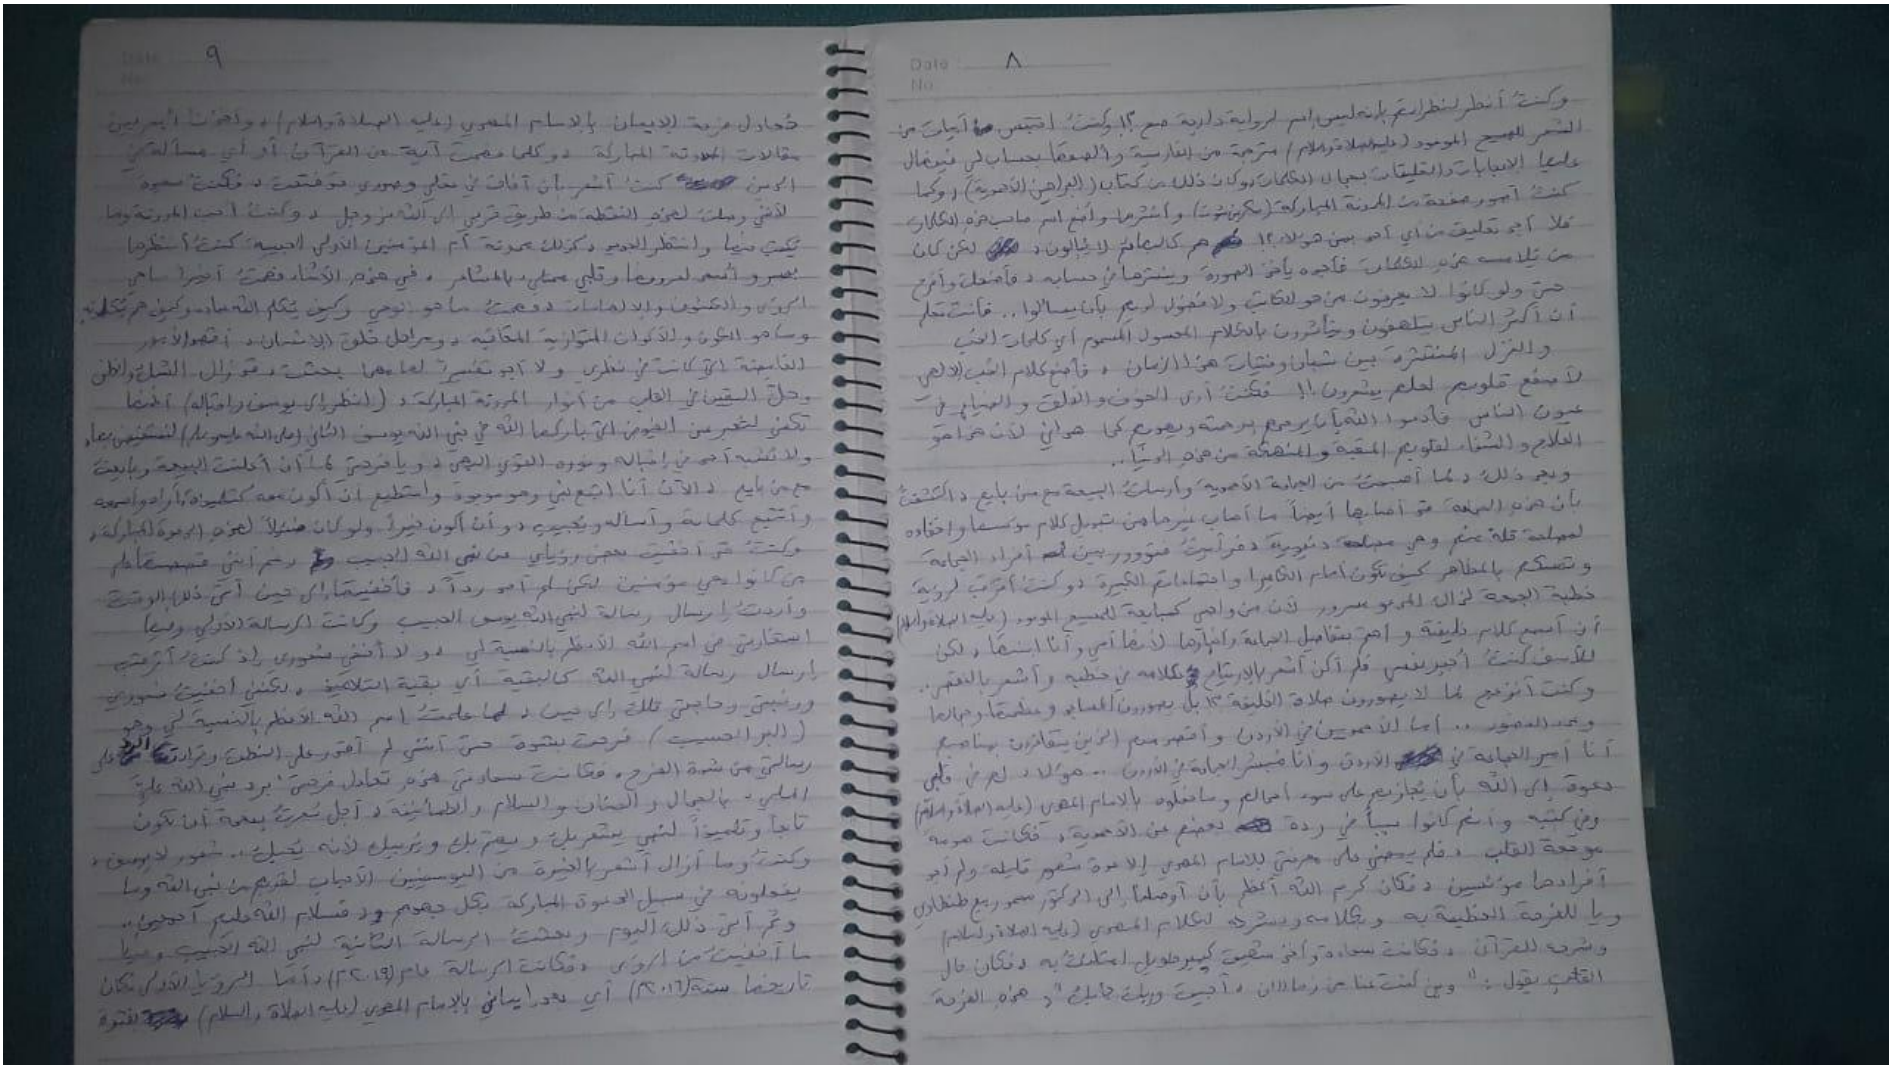 Date : ٨
No
وكنتُ أنظر لنظراتهم بإنه ليس اسم لرواية دارجة صح ؟! وكنتُ اقتبس أبيات من
الشعر للمسيح الموعود (عليه الصلاة والسلام) مترجمة من الفارسية وألصقها بحساب لي فيوضال
عليها الاعجابات والتعليقات بجمال الكلمات وكان ذلك من كتاب (البراهين الأحمدية) وكما
كنتُ أصور صفحة من المدونة المباركة (سكرين شوت) وأنشرها وأضع اسم صاحب هذه الكلمات
فلا أجد تعليق من أي أحد بين هؤلاء ؟! هم كالبهائم لا يُبالون ، لكن كان
من تلامسه هذه الكلمات فأجده يأخذ الصورة وينشرها في حسابه ، فأضحك وأفرح
حتى ولو كانوا لا يعرفون من هو الكاتب ولا فضول لديهم بأن يسألوا .. فأنت تعلم
أن أكثر الناس يتلهفون ويتأثرون بالكلام المعسول المسموم أي كلمات الحب
والغزل المنتشرة بين شبان وفتيات هذا الزمان ، فأضع كلام الحب الإلهي
لأصفع قلوبهم لعلهم يشعرون !! فكنتُ أرى الخوف والقلق والضياع في
عيون الناس فأدعوا الله بأن يرحمهم برحمته ويهديهم كما هداني لأن هذا هو
العلاج و الشفاء لقلوبهم المتعبة و المنهكة من هذه الدنيا ..
وبعد ذلك ، لما أصبحتُ من الجماعة الأحمدية وأرسلتُ البيعة مع من بايع ، اكتشفتُ
بأن هذه الجماعة قد أصابها أيضاً ما أصاب غيرها من تبديل كلام مؤسسها وإخفاءه
لمصلحة فئة منهم وهي مصلحة دنيوية ، فرأيتُ فتوور بين أفراد الجماعة
وتمسكهم بالمظاهر كيف تكون أمام الكاميرا واجتماعاتهم الكبيرة ، وكنتُ أترقب لرؤية
خطبة الجمعة لنزال المدعو مسرور لأن من واجبي كمبايعة للمسيح الموعود (عليه الصلاة والسلام)
أن أسمع كلام خليفته و أهتم بتفاصيل الجماعة وأخبارها لأنها أمي وأنا ابنتها ، لكن
للأسف كنتُ أُجبر نفسي فلم أكن أشعر بالإرتياح لكلامه في خطبه وأشعر بالنعس ..
وكنت أنزعج لما لا يصورون صلاة الخليفة ؟! بل يصورون المساجد و عظمتها وجمالها
وعدد الحضور .. أما الأحمديين في الأردن و أقصد منهم الذين يتفاخرون بمناصبهم
أنا أمير الجماعة في الأردن وأنا مُبشر الجماعة في الأردن .. هؤلاء لهم في قلبي
دعوة إلى الله بأن يُجازيهم على سوء أعمالهم وما فعلوه بالإمام المهدي (عليه الصلاة والسلام)
وفي كتبه و أنهم كانوا سبباً في ردة بعضهم عن الأحمدية ، فكانت صدمة
موجعة للقلب ، فلم يمض على معرفتي للإمام المهدي إلا عدة شهور قليلة ولم أجد
أفرادها مؤنسين ، فكان كرم الله أعظم بأن أوصلها إلى الدكتور محمد ربيع طنطاوي
ويا للفرحة العظيمة به وبكلامه وبشرحه لكلام المهدي (عليه الصلاة والسلام)
وشرحه للقرآن ، فكانت سعادة وأخذ شهيق كبير طويل امتلئتُ به ، فكان حال
القلب يقول : " وين كنت عنا من زمااان ، أحييت وربك جابك" ، هذه الفرحة
Date : ٩
No
تُعادل فرحة الإيمان بالإمام المهدي (عليه الصلاة والسلام) ، وأخذتُ أبحر بين
مقالات المدونة المباركة ، وكلما فهمتُ آية من القرآن أو أي مسألة في
الدين كنتُ أشعر بأن آفاق في عقلي وصدري توفتحت ، فكنتُ سعيدة
لأنني وصلتُ لهذه النقطة من طريق قربي إلى الله عز وجل ، وكنتُ أحب المدونة وما
يُكتب فيها وانتظر الجديد ، كذلك مدونة أم المؤمنين الأولى الحبيبة كنتُ أنتظرها
بصبر و أبتسم لحروفها وقلبي ممتلئ بالمشاعر ، في هذه الأثناء فهمتُ أخيراً ما هي
الرؤى والكشوف والإلهامات ، فهمتُ ما هو الوحي وكيف يُكلم الله عباده وكيف هم يُكلمونه
وما هو الكون والأكوان المتوازية المتكاثبة ، ومراحل خلق الإنسان ، أقصد الأمور
الغامضة التي كانت في نظري ولا أجد تفسيراً لها مهما بحثت ، قد زال الشك والظن
وحلّ اليقين في القلب من أنوار المدونة المباركة ، (انظر إلى يوسف وإقباله) أظنها
تكفي لتُعبر عن الفيوض التي باركها الله في نبي الله يوسف الثاني (صلى الله عليه وسلم)
ولا يُشبه أحد في إقباله ونوره القوي البهي ، ويا فرحتي لما أن أعلنت البيعة وبايعت
مع من بايع ، الآن أنا اتبع نبي وهو موجود وأستطيع أن أكون معه كتلميذة أراه وأسمعه
وأتتبع كلماته وأسأله ويُجيب ، وأن أكون خيراً ولو كان ضئيلاً لهذه الدعوة المباركة ،
وكنتُ قد أخفيت بعض رؤياي عن نبي الله الحبيب ، رغم أنني قصصتها لم
من كانوا معي مؤمنين لكن لم أجد رداً ، فأخفيتها إلى حين أتى ذلك الوقت
وأردتُ إرسال رسالة لنبي الله يوسف الحبيب وكانت الرسالة الأولى وفيها
استخارتي عن اسم الله الأعظم بالنسبة لي ، ولا أنسى شعوري إذ كنتُ أترقب
إرسال رسالة لنبي الله كالبقية أي بقية التلاميذ ، لكنني أخفيتُ شعوري
ورغبتي وحاجتي تلك إلى حين ، لما علمتُ اسم الله الأعظم بالنسبة لي وهو
(البر الحسيب) فرحت بشدة حتى أنني لم أقدر على النطق وقراءة الرد على
رسالتي من شدة الفرح ، فكانت سعادتي هذه تعادل فرحتي برد نبي الله عليّ
المليء بالجمال والحنان والسلام والطمأنينة ، أجل شعرتُ بنعمة أن تكون
تابعاً وتلميذاً لنبي يشعر بك ويهتم بك ويُربيك لأنه يُحبك .. شعور لا يوصف ،
وكنتُ وما أزال أشعر بالغيرة من اليوسفيين الأحباب لقربهم من نبي الله وما
يفعلونه في سبيل الدعوة المباركة بكل جهدهم ، فسلام الله عليهم أجمعين ..
وثم أتى ذلك اليوم وبعثتُ الرسالة الثانية لنبي الله الحبيب وفيها
ما أخفيتُ من الرؤى ، فكانت الرسالة عام (٢٠١٩م) ، أما الرؤيا الأولى فكان
تاريخها سنة (٢٠١٦م) أي بعد إيماني بالإمام المهدي (عليه الصلاة والسلام) بفترة